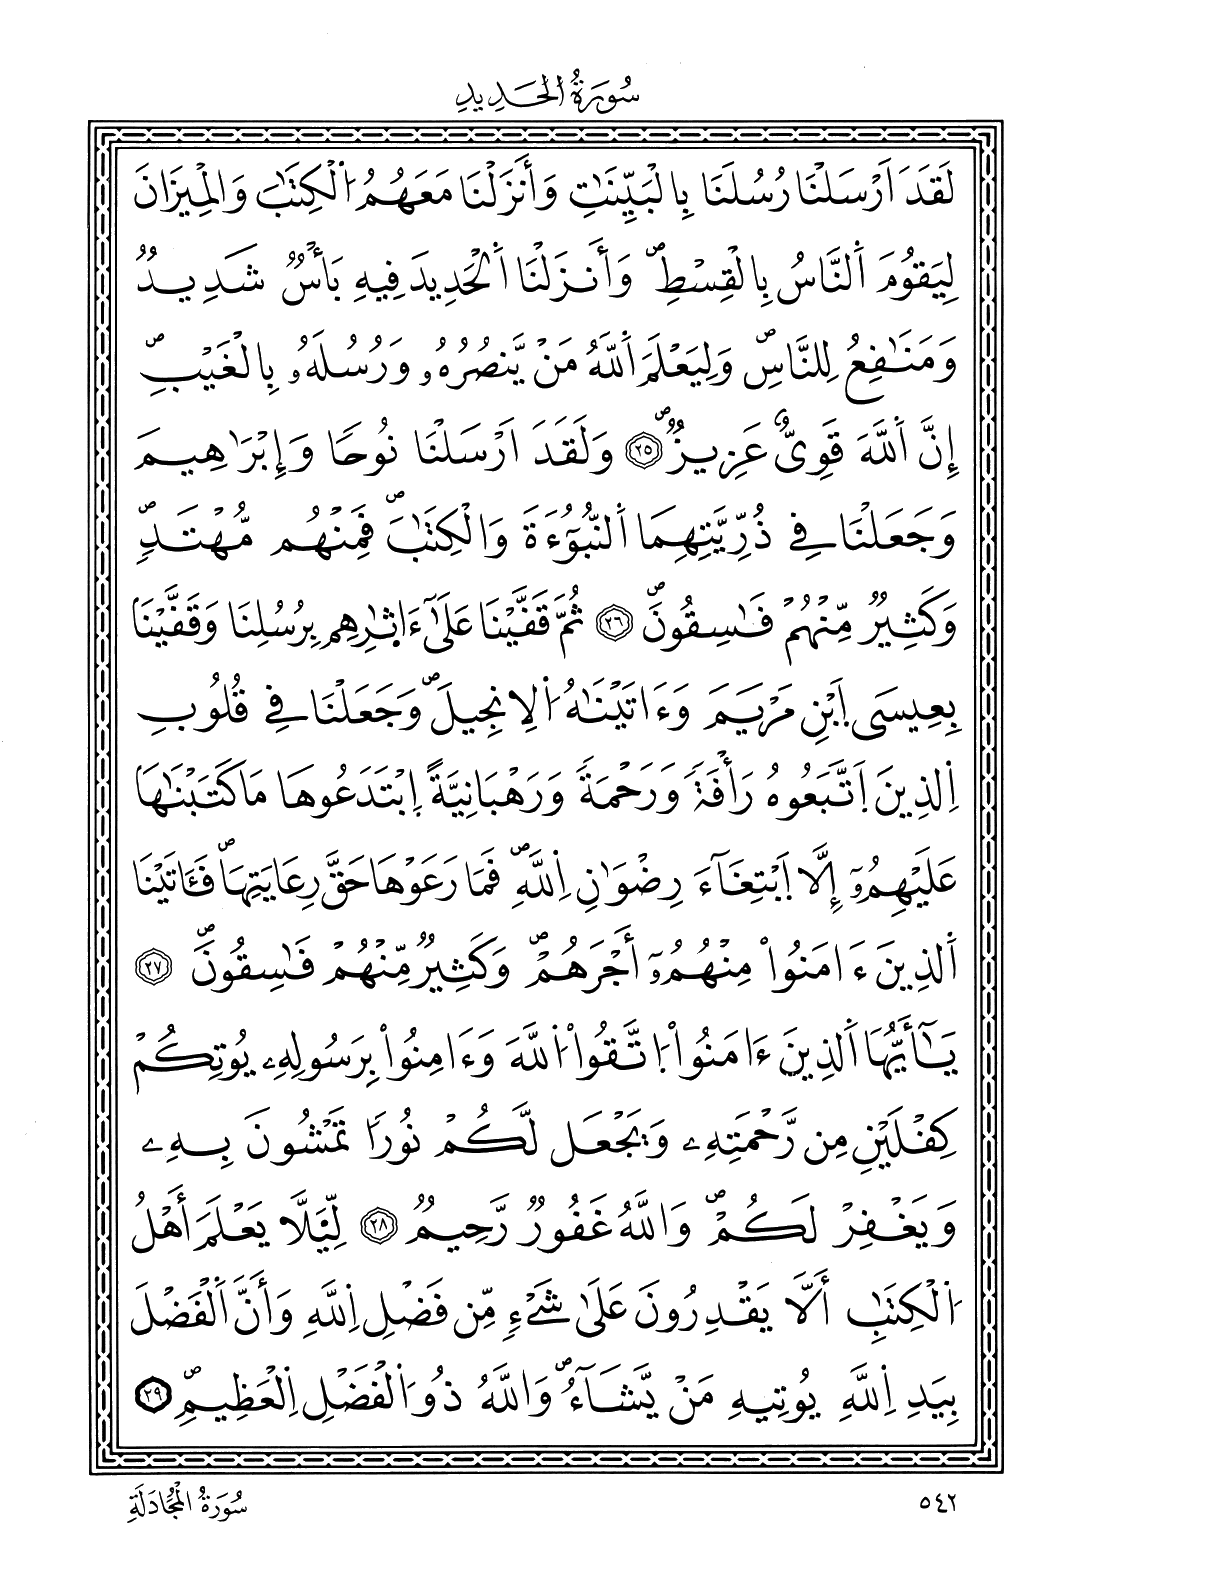 سُورَةُ الحَدِيدِ
لَقَدَ اَرْسَلْنَا رُسُلَنَا بِالْبَيِّنَٰتِ وَأَنزَلْنَا مَعَهُمُ اُ۬لْكِتَٰبَ وَالْمِيزَانَ
لِيَقُومَ اَ۬لنَّاسُ بِالْقِسْطِۖ وَأَنزَلْنَا اَ۬لْحَدِيدَ فِيهِ بَأْسٞ شَدِيدٞ
وَمَنَٰفِعُ لِلنَّاسِۖ وَلِيَعْلَمَ اَ۬للَّهُ مَنْ يَّنصُرُهُۥ وَرُسُلَهُۥ بِالْغَيْبِۖ
إِنَّ اَ۬للَّهَ قَوِيٌّ عَزِيزٞۖ ٢٥ وَلَقَدَ اَرْسَلْنَا نُوحاٗ وَإِبْرَٰهِيمَ
وَجَعَلْنَا فِي ذُرِّيَّتِهِمَا اَ۬لنُّبُوٓءَةَ وَالْكِتَٰبَۖ فَمِنْهُم مُّهْتَدٖۖ
وَكَثِيرٞ مِّنْهُمْ فَٰسِقُونَۖ ٢٦ ثُمَّ قَفَّيْنَا عَلَىٰٓ ءَاثٰ۪رِهِم بِرُسُلِنَا وَقَفَّيْنَا
بِعِيسَى اَ۪بْنِ مَرْيَمَ وَءَاتَيْنَٰهُ اُ۬لِانجِيلَۖ وَجَعَلْنَا فِي قُلُوبِ
اِ۬لذِينَ اَ۪تَّبَعُوهُ رَأْفَةٗ وَرَحْمَةٗ وَرَهْبَانِيَّةً اِ۪بْتَدَعُوهَا مَا كَتَبْنَٰهَا
عَلَيْهِمُۥٓ إِلَّا اَ۪بْتِغَآءَ رِضْوَٰنِ اِ۬للَّهِۖ فَمَا رَعَوْهَا حَقَّ رِعَايَتِهَاۖ فَـَٔاتَيْنَا
اَ۬لذِينَ ءَامَنُواْ مِنْهُمُۥٓ أَجْرَهُمْۖ وَكَثِيرٞ مِّنْهُمْ فَٰسِقُونَۖ ٢٧
يَٰٓأَيُّهَا اَ۬لذِينَ ءَامَنُواْ اُ۪تَّقُواْ اُ۬للَّهَ وَءَامِنُواْ بِرَسُولِهِۦ يُوتِكُمْ
كِفْلَيْنِ مِن رَّحْمَتِهِۦ وَيَجْعَل لَّكُمْ نُوراٗ تَمْشُونَ بِهِۦ
وَيَغْفِرْ لَكُمْۖ وَاللَّهُ غَفُورٞ رَّحِيمٞ ٢٨ لِّيَ۬لَّا يَعْلَمَ أَهْلُ
اُ۬لْكِتَٰبِ أَلَّا يَقْدِرُونَ عَلَىٰ شَےْءٖ مِّن فَضْلِ اِ۬للَّهِ وَأَنَّ اَ۬لْفَضْلَ
بِيَدِ اِ۬للَّهِ يُوتِيهِ مَنْ يَّشَآءُۖ وَاللَّهُ ذُو اُ۬لْفَضْلِ اِ۬لْعَظِيمِۖ ٢٩
٥٤٢
سُورَةُ المُجَادَلَةِ